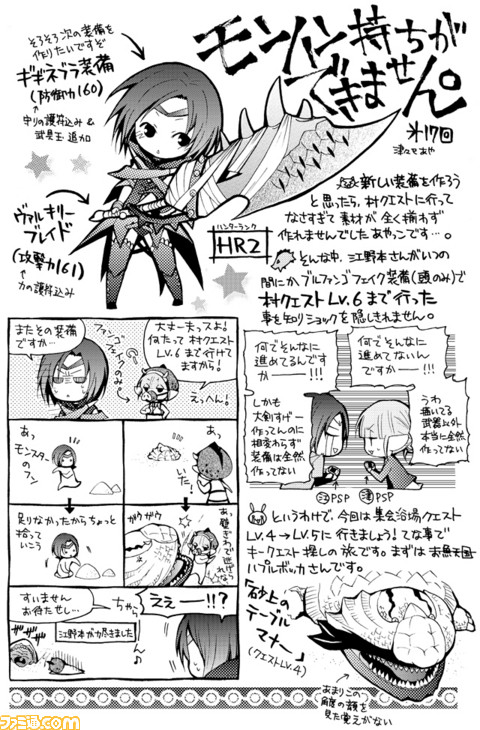 モンハン持ちが
できません。
第17回
津々モあや
そろそろ次の装備を
作りたいですぞ
ギギネブラ装備
(防御力160)
守りの護符込み &
武具玉追加
ヴァルキリー
ブレイド
(攻撃力161)
力の護符込み
ハンターランク
HR2
新しい装備を作ろう
と思ったら、村クエストに行って
なさすぎて素材が全く揃わず
作れませんでしたあやっこです…。
そんな中、江野本さんがいつの
間にかブルファンゴフェイク装備(頭のみ)で
村クエストLv.6まで行った
事を知りショックを隠しきれません。
何でそんなに
進めてないん
ですか―――!!!
何でそんなに
進めてるんです
か―――!!!
うわ
描いてる
武器以外
本当に全然
作ってない
しかも
大剣すげー
作ってんのに
相変わらず
装備は全然
作ってない
江 PSP
津 PSP
というわけで、今回は集会浴場クエスト
Lv.4→Lv.5に行きましょう!てな事で
キークエスト探しの旅です。まずはお魚天国
ハプルボッカさんです。
「砂上の
テーブル
マナー」
(クエストLv.4)
あまりこの
角度の顔を
見た覚えがない
大丈ー夫っスよ!
何たって村クエスト
Lv.6まで行けて
ますから!
またその装備
ですか…
ファンゴ
フェイクのみ
えっへん!
あっ
いた。
あっ
モンスターの
フン
あっ壁ぎわで逃げれない
ガウガウ
足りなかったからちょっと
拾って
いこう
ええー!!?
ちゃら
すいません
お待たせし…
江野本が力尽きました
ファミ通.com